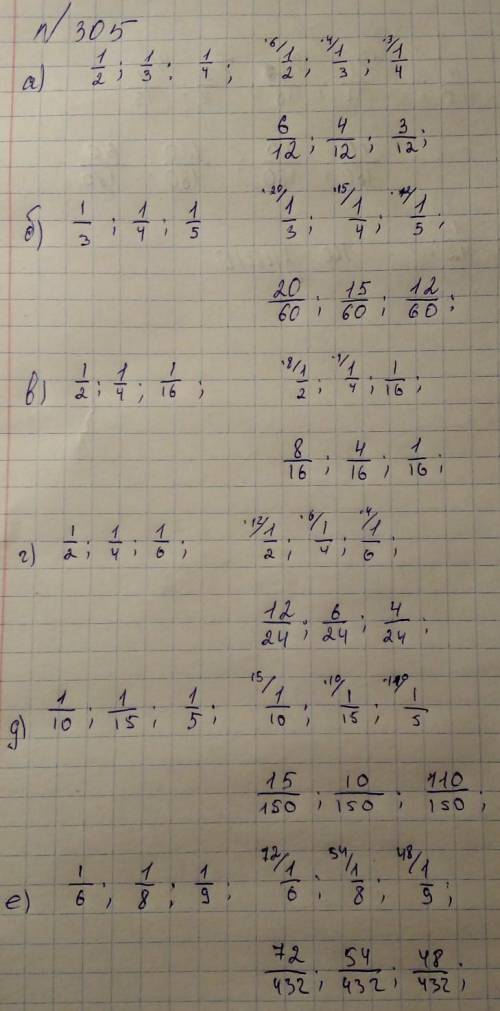 № 305
а) 1/2 ; 1/3 ; 1/4 ; ·6/ 1/2 ; ·4/ 1/3 ; ·3/ 1/4
6/12 ; 4/12 ; 3/12 ;
б) 1/3 ; 1/4 ; 1/5 ·20/ 1/3 ; ·15/ 1/4 ; ·12/ 1/5 ;
20/60 ; 15/60 ; 12/60 ;
в) 1/2 ; 1/4 ; 1/16 ; ·8/ 1/2 ; 1/4 ; 1/16 ;
8/16 ; 4/16 ; 1/16 ;
г) 1/2 ; 1/4 ; 1/6 ; ·12/ 1/2 ; ·6/ 1/4 ; ·4/ 1/6 ;
12/24 ; 6/24 ; 4/24 ;
д) 1/10 ; 1/15 ; 1/5 ; 15/ 1/10 ; ·10/ 1/15 ; 1/5
15/150 ; 10/150 ; 110/150 ;
е) 1/6 ; 1/8 ; 1/9 ; 72/ 1/6 ; 54/ 1/8 ; 48/ 1/9 ;
72/432 ; 54/432 ; 48/432 ;